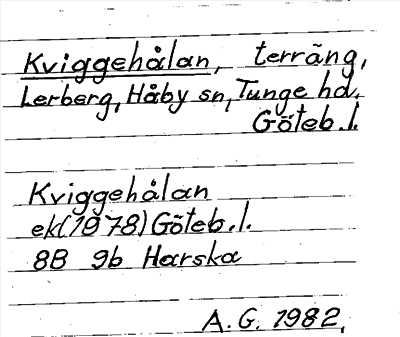 Kviggehålan, terräng,
Lerberg, Håby sn, Tunge hd.
Göteb.l.
Kviggehålan
ek(1978) Göteb.l.
8B 9b Harska
A.G. 1982.